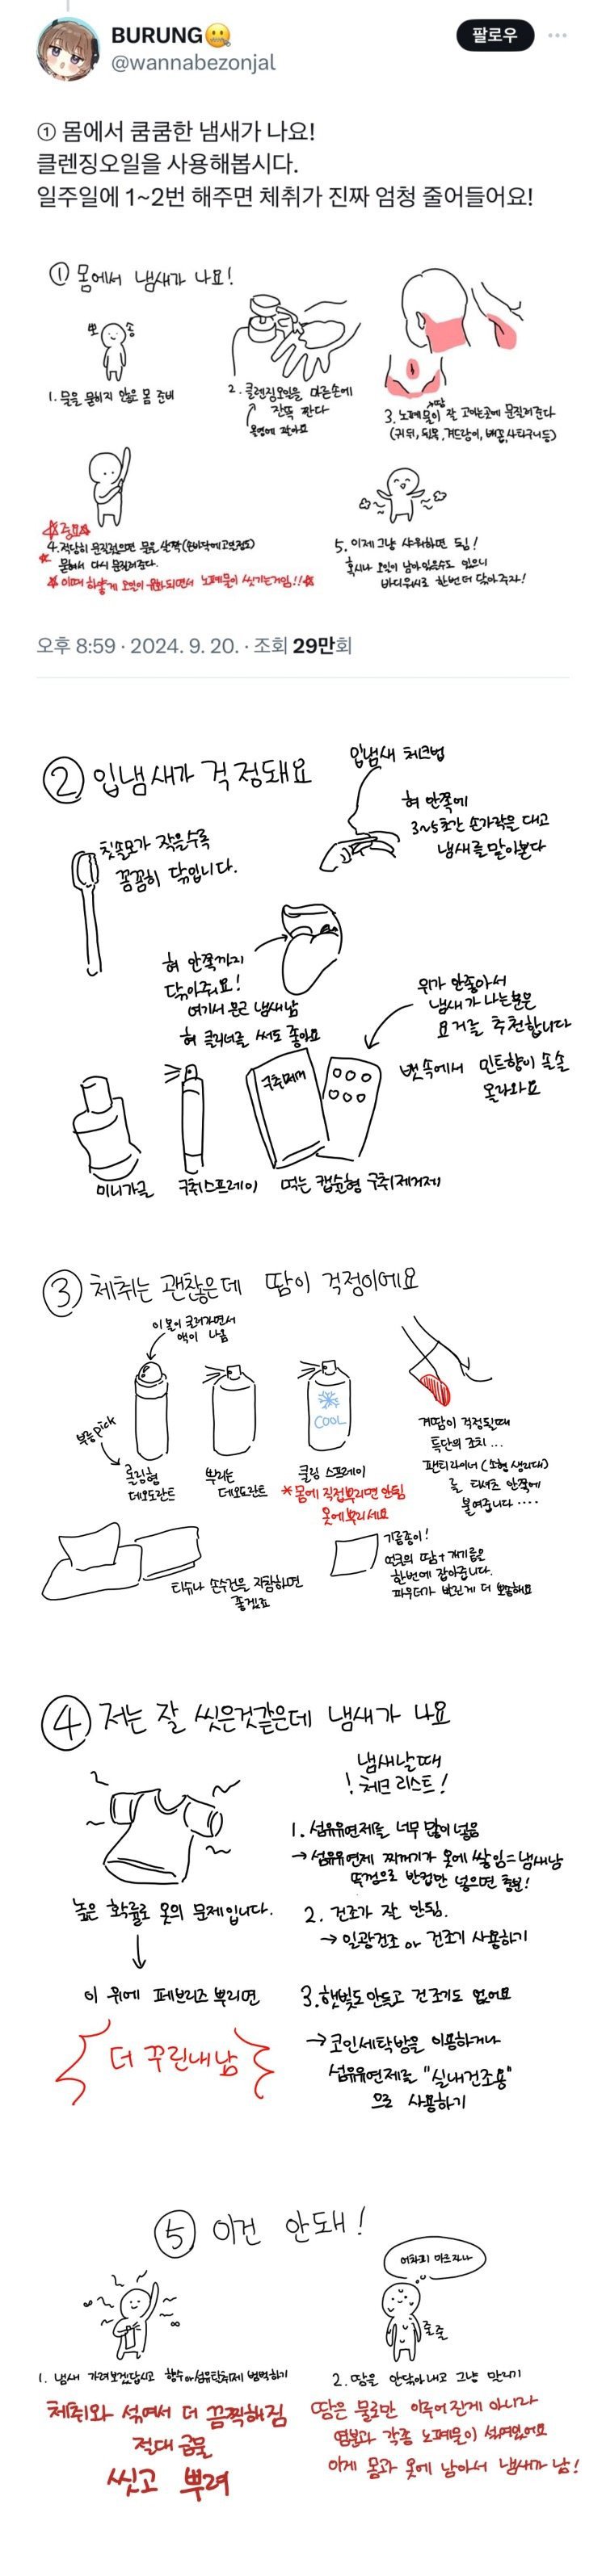 BURUNG🤐
@wannabezonjal
팔로우
① 몸에서 쿰쿰한 냄새가 나요!
클렌징오일을 사용해봅시다.
일주일에 1~2번 해주면 체취가 진짜 엄청 줄어들어요!
① 몸에서 냄새가 나요!
뽀송
1. 물을 묻히지 않은 몸 준비
2. 클렌징오일을 마른손에
잔뜩 짠다
올영에 팔아요
땀
3. 노폐물이 잘 고이는곳에 문질러준다
(귀뒤, 뒷목, 겨드랑이, 배꼽, 사타구니등)
☆중요☆
4. 적당히 문질렀으면 물을 살짝(손바닥에고일정도)
묻혀서 다시 문질러준다.
☆이때 하얗게 오일이 유화되면서 노폐물이 씻기는거임!!☆
5. 이제 그냥 샤워하면 됨!
혹시나 오일이 남아있을수도 있으니
바디워시로 한번 더 닦아주자!
오후 8:59 · 2024. 9. 20. · 조회 29만회
② 입냄새가 걱정돼요
입냄새 체크법
혀 안쪽에
3~5초간 손가락을 대고
냄새를 맡아본다
칫솔모가 작을수록
꼼꼼히 닦입니다.
혀 안쪽까지
닦아주세요!
여기서 은근 냄새남
혀 클리너를 써도 좋아요
위가 안좋아서
냄새가 나는분은
요거를 추천합니다
뱃속에서 민트향이 솔솔
올라와요
구취제거
미니가글
구취스프레이
먹는 캡슐형 구취제거제
③ 체취는 괜찮은데 땀이 걱정이에요
이 볼이 굴러가면서
액이 나옴
부릉pick
롤링형
데오도란트
뿌리는
데오도란트
COOL
쿨링 스프레이
*몸에 직접뿌리면 안됨
옷에뿌리세요
겨땀이 걱정될때
특단의 조치...
팬티라이너(소형 생리대)
를 티셔츠 안쪽에
붙여줍니다....
티슈나 손수건을 지참하면
좋겠죠
기름종이!
얼굴의 땀+개기름을
한번에 잡아줍니다.
파우더가 발린게 더 뽀송해요
④ 저는 잘 씻은것같은데 냄새가 나요
냄새날때
! 체크 리스트!
1. 섬유유연제를 너무 많이 넣음
→섬유유연제 찌꺼기가 옷에 쌓임=냄새남
뚜껑으로 반컵만 넣으면 충분!
높은 확률로 옷의 문제입니다.
2. 건조가 잘 안됨.
→일광건조 or 건조기 사용하기
이 위에 페브리즈 뿌리면
더 꾸린내남
3. 햇빛도 안들고 건조기도 없어요
→코인세탁방을 이용하거나
섬유유연제를 "실내건조용"
으로 사용하기
⑤ 이건 안돼!
1. 냄새 가려보겠답시고 향수or섬유탈취제 범벅하기
체취와 섞여서 더 끔찍해짐
절대 금물
씻고 뿌려
어차피 마르자나
줄줄
2. 땀을 안닦아내고 그냥 말리기
땀은 물로만 이루어진게 아니라
염분과 각종 노폐물이 섞여있어요
이게 몸과 옷에 남아서 냄새가 남!